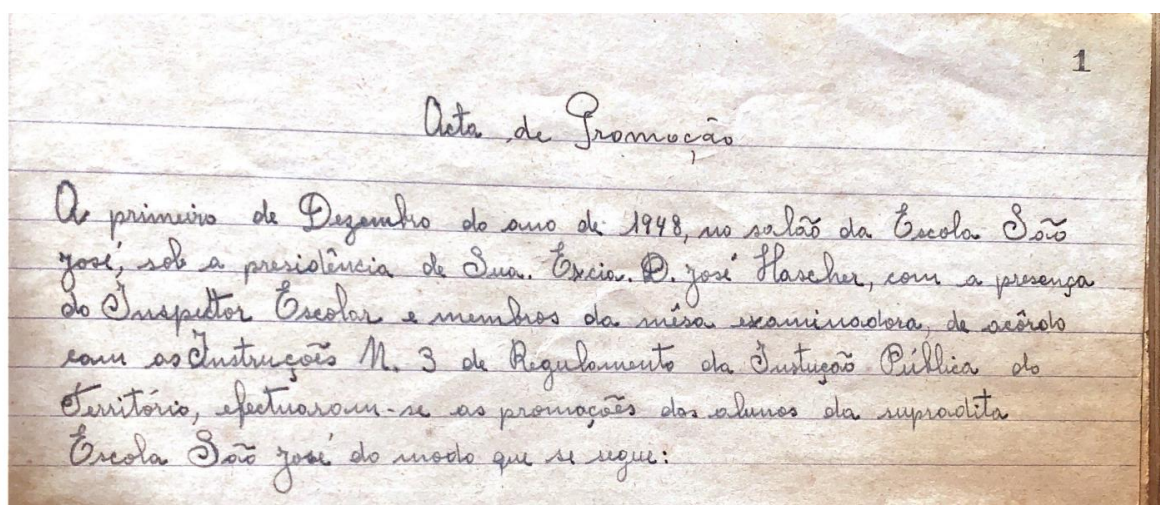 1
Acta de Promoção
A primeiro de Dezembro do ano de 1948, no salão da Escola São
José, sob a presidência de Sua. Excia. D. José Hascher, com a presença
do Inspector Escolar e membros da mêsa examinadora, de acôrdo
com as Instruções N. 3 de Regulamento da Instução Pública do
Território, efectuaram-se as promoções dos alunos da supradita
Escola São José do modo que se segue: